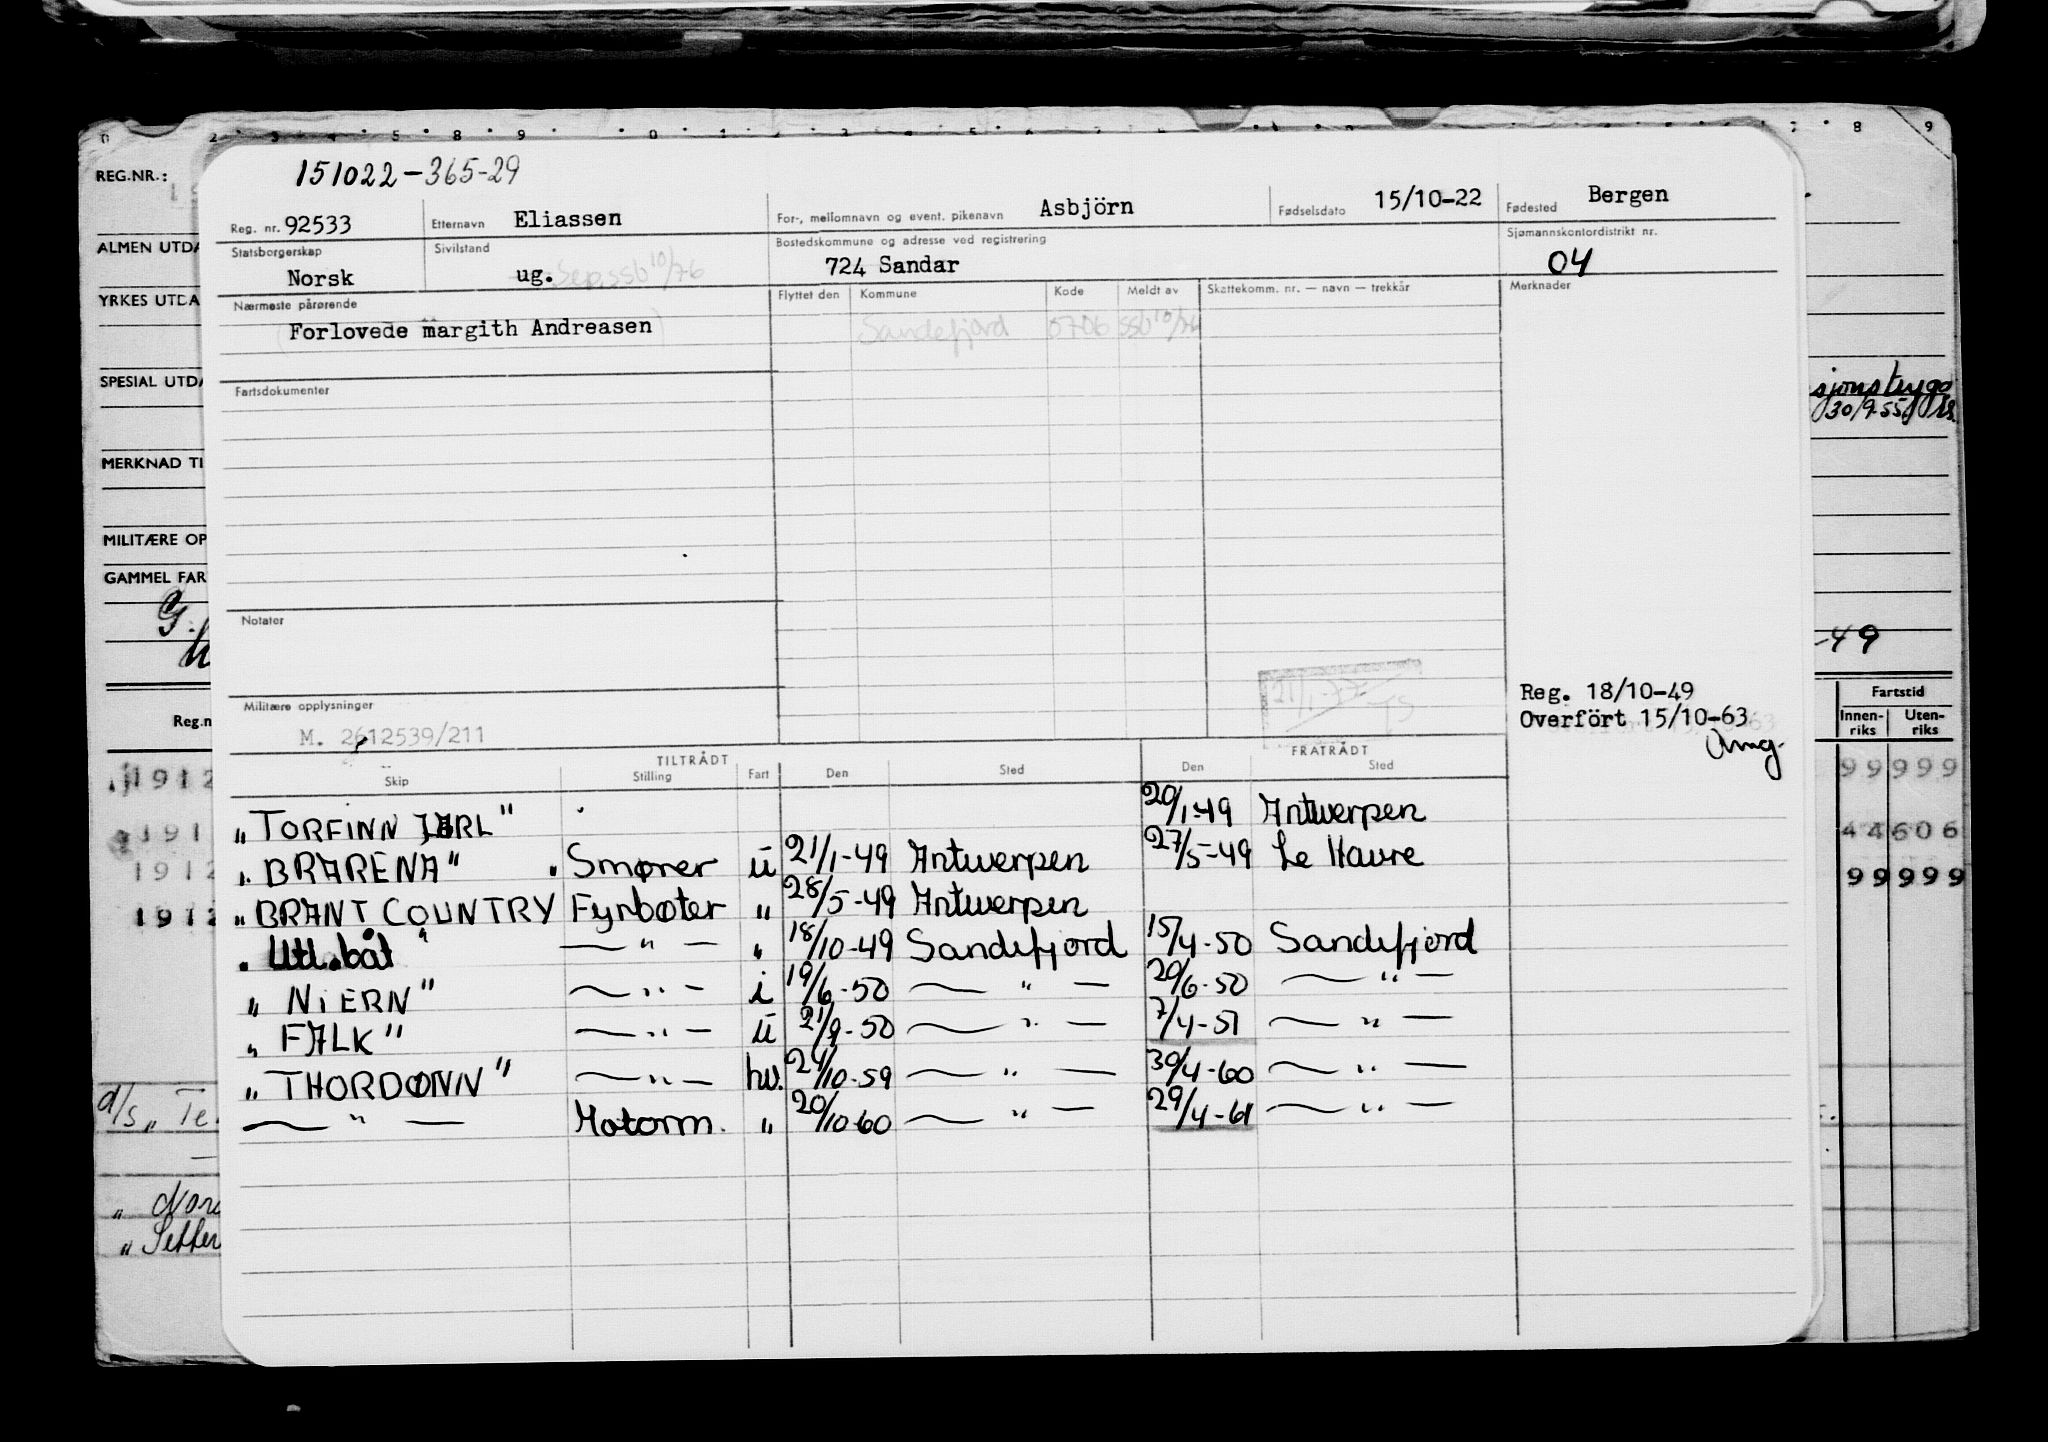 151022-365-29
Reg. nr. 92533 Etternavn Eliassen For-, mellomnavn og event. pikenavn Asbjörn Fødselsdato 15/10-22 Fødested Bergen
Statsborgerskap Norsk Sivilstand ug. Sep.ssb 10/76 Bostedskommune og adresse ved registrering 724 Sandar Sjømannskontordistrikt nr. 04
Nærmeste pårørende Flyttet den Kommune Kode Meldt av Skattekomm. nr. — navn — trekkår Merknader
Forlovede margith Andreasen Sandefjord 0706 ssb 10/76
Fartsdokumenter
Notater
Militære opplysninger
M. 2612539/211
21/1-77 TS
Reg. 18/10-49
Overført 15/10-63
TILTRÅDT FRATRÅDT
Skip Stilling Fart Den Sted Den Sted
"TORFINN JARL" 20/1-49 Antwerpen
" BRARENA" Smører u 21/1-49 Antwerpen 27/5-49 Le Havre
" BRANT COUNTRY Fyrbøter " 28/5-49 Antwerpen
" Utl.båt " — " — " 18/10-49 Sandefjord 15/4-50 Sandefjord
" NIERN" — " — i 19/6-50 — " — 20/6-50 — " —
" FALK" — " — u 21/9-50 — " — 7/4-51 — " —
" THORDØNN" — " — hv. 24/10-59 — " — 30/4-60 — " —
— " — Motorm. " 20/10-60 — " — 29/4-61 — " —
REG.NR.:
ALMEN UTDA
YRKES UTDA
SPESIAL UTDA
30/9-55
MERKNAD TI
MILITÆRE OP
GAMMEL FAR
-49
Reg.n
Fartstid
Innen-riks Uten-riks
1912 99999
191 44606
1912 99999
1912
d/s "Te
"Nord
"Setter